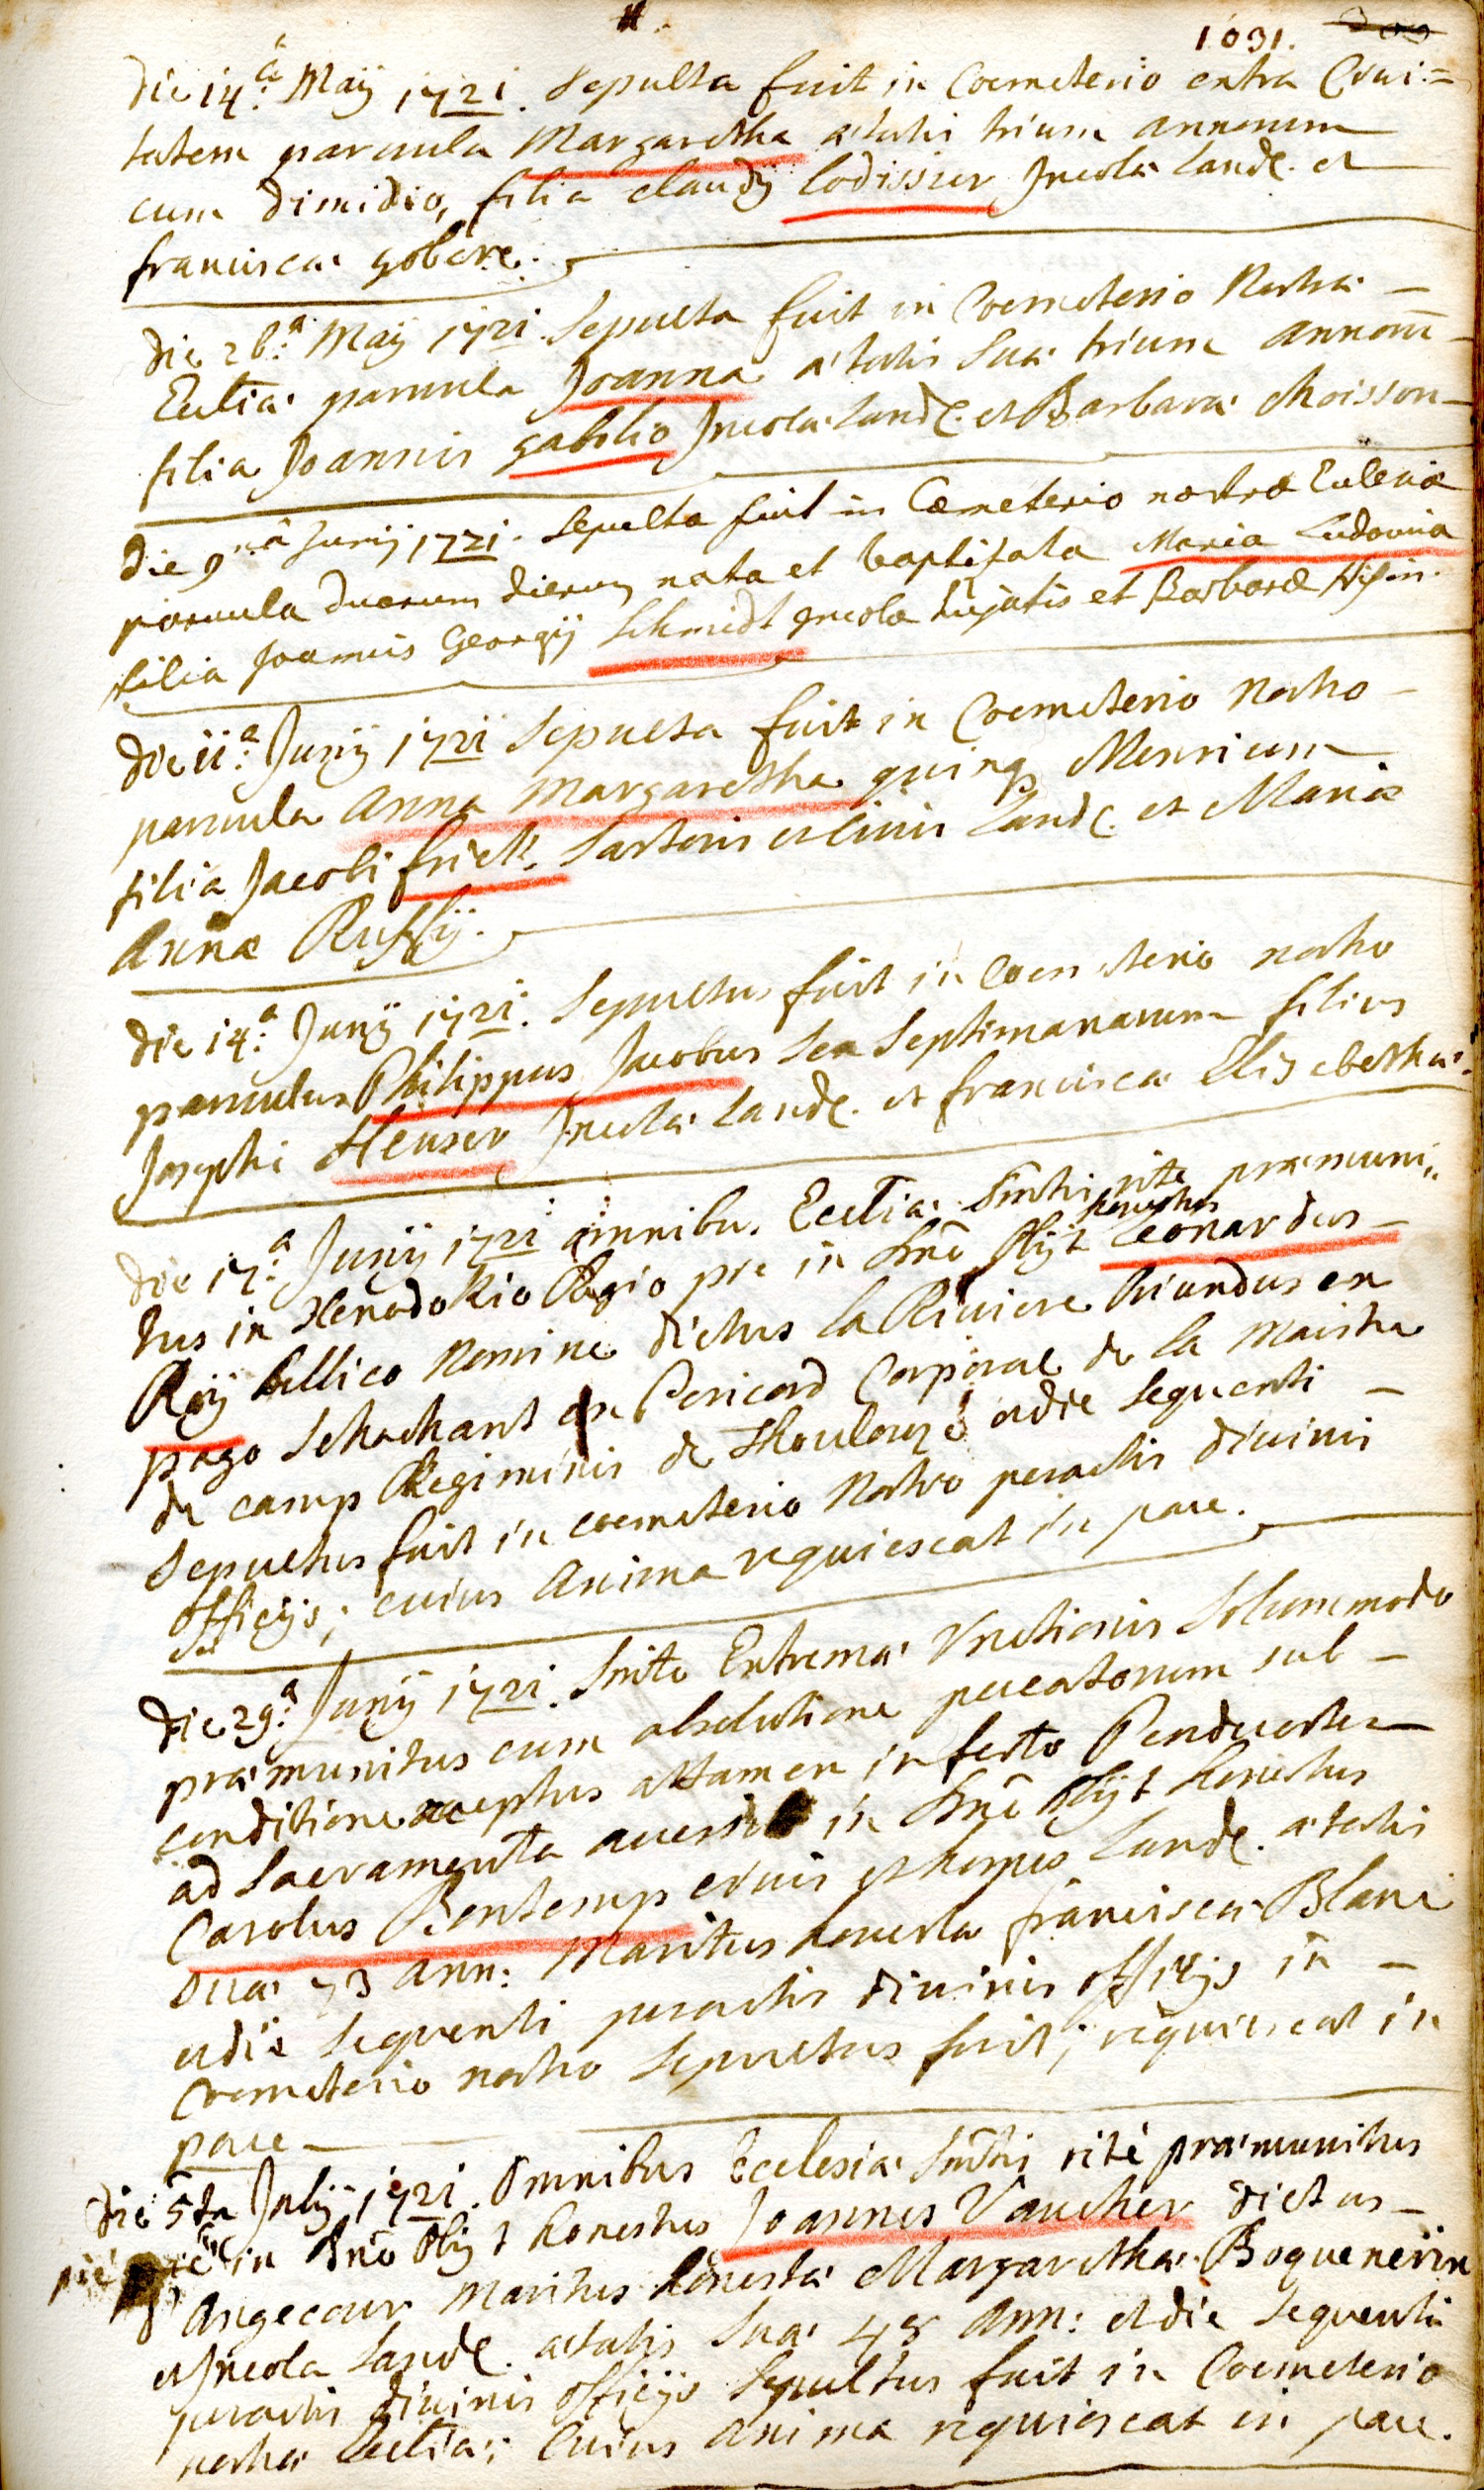 1031. 209
die 14.a Maij 1721. Sepulta fuit in Coemeterio extra Ciui=
tatem paruula Margaretha ætatis trium annorum
cum dimidio, filia claudij Codissier Jncolæ Land. et
franciscæ gobere.
die 26.a Maij 1721. Sepulta fuit in Coemeterio Nostræ
Ecclīæ paruula Joanna ætatis suæ trium annorū
filia Joannis gabolio Jncolæ Land. et Barbaræ Moisson
die 9nâ Junij 1721. Sepulta fuit in Cœmeterio nostræ Ecclesiæ
paruula duorum dierum nata et baptisata Maria Ludouica
filia Joannis Georgij Schmidt Jncolæ hujatis et Barbaræ
die 11.a Junij 1721 Sepulta fuit in Coemeterio Nostro
paruula Anna Margaretha quinq Mensium
filia Jacobi frick Sartoris et Ciuis Land. et Mariæ
Annæ Ruffij.
die 14.a Junij 1721. Sepultus fuit in Coemeterio nostro
paruulus Philippus Jacobus Sex Septimanarum filius
Josephi Heuser Jncolæ Land. et franciscæ Elisabethæ.
die 17.a Junij 1721 omnibus Ecclīæ Smtis rite præmuni,,
tus in Xenodokio Regio pie in Dnō obijt honestus Leonardus
Roij bellico Nomine dictus la Riuiere oriundus ex
pago Schachant ex Pericord Corporal de la Maistra
de camp Regiminis de Thoulouze et die sequenti
Sepultus fuit in coemeterio Nostro peractis diuinis
officijs; cuius Anima requiescat in pace.
die 29.a Junij 1721. Smto Extremæ Vnctionis Solummodo
præmunitus cum absolutione peccatorum sub
conditione acceptus attamen in festo Pendecostes
ad Sacramenta accessit in Dnō obijt honestus
Carolus Bontemps ciuis et hospes Land. ætatis
suæ 73 ann: Maritus honestæ franciscæ Blanc
et die sequenti peractis diuinis officijs in
Coemeterio nostro Sepultus fuit; requiescat in
pace
die 5ta Julij 1721. Omnibus Ecclesiæ Smtis rité præmunitus
pié in Dnō Obijt honestus Joannes Vaucher dictus
Angecour Maritus honestæ Margarethæ Boquenerin
et Jncola Land. ætatis suæ 48 Ann: et die sequenti
peractis diuinis officijs Sepultus fuit in Coemeterio
nostræ Ecclīæ; Cuius anima requiescat in pace.